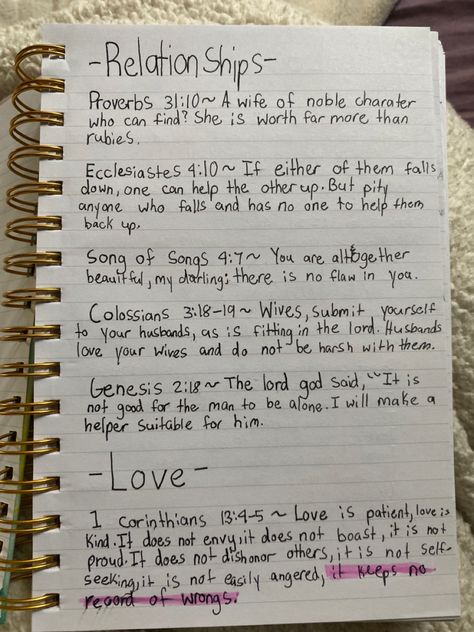 -Relationships-
Proverbs 31:10~ A wife of noble charater
who can find? She is worth far more than
rubies.
Ecclesiastes 4:10~ If either of them falls
down, one can help the other up. But pity
anyone who falls and has no one to help them
back up.
Song of Songs 4:7~ You are altogether
beautiful, my darling; there is no flaw in you.
Colossians 3:18-19~ Wives, submit yourself
to your husbands, as is fitting in the lord. Husbands
love your wives and do not be harsh with them.
Genesis 2:18~ The lord god said, "It is
not good for the man to be alone. I will make a
helper suitable for him.
-Love-
1 Corinthians 13:4-5~ Love is patient, love is
kind. It does not envy, it does not boast, it is not
proud. It does not dishonor others, it is not self-
seeking, it is not easily angered, it keeps no
record of wrongs.